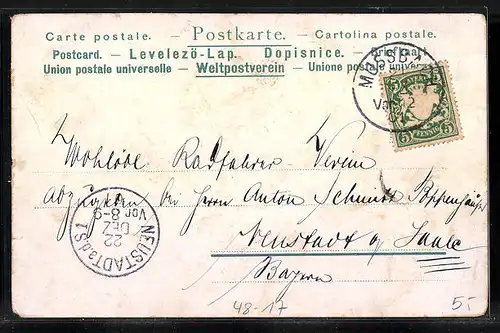 Carte postale. — Postkarte. — Cartolina postale.
Postcard. — Levelezö-Lap. Dopisnice. — Briefkaart
Union postale universelle — Weltpostverein — Unione postale univer
MOSSB
Vor
BAYERN
5 PFENNIG 5
Wohllöbl. Radfahrer-Verein
abzugeben bei Herrn Anton Schmitt
Neustadt a/ Saale
Bayern
NEUSTADT a.d.S. 1
22
DEZ
Vor 8-9
48-17
5.-